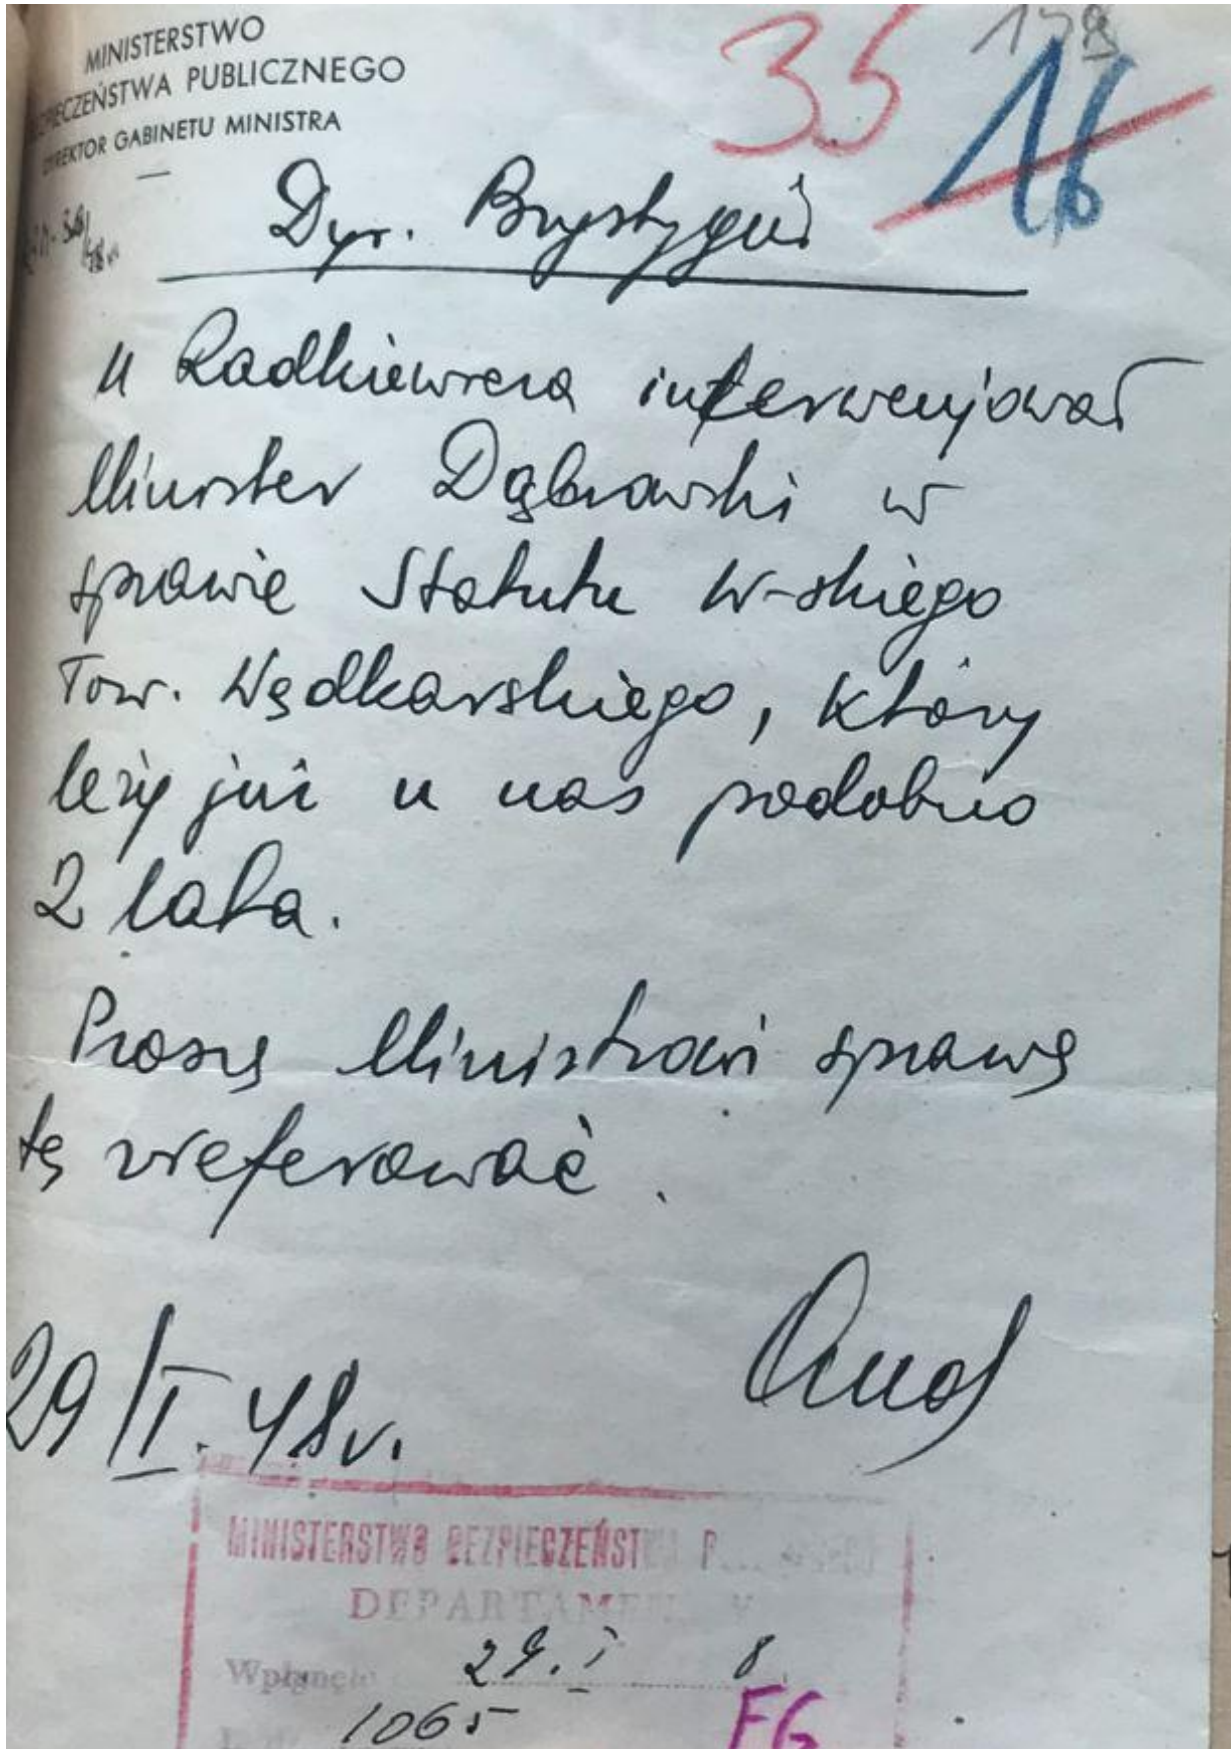 MINISTERSTWO
PIECZEŃSTWA PUBLICZNEGO
DYREKTOR GABINETU MINISTRA
35
16
Dyr. Brystygier
u Radkiewicza interweniował
Minister Dąbrowski w
sprawie Statutu W-skiego
Tow. Wędkarskiego, który
leży już u nas podobno
2 lata.
Proszę Ministrowi sprawę
tę zreferować.
29/I. 48r.
MINISTERSTWO BEZPIECZEŃST
DEPARTAMEN V
Wpłynęło 29. I 8
1065
FG